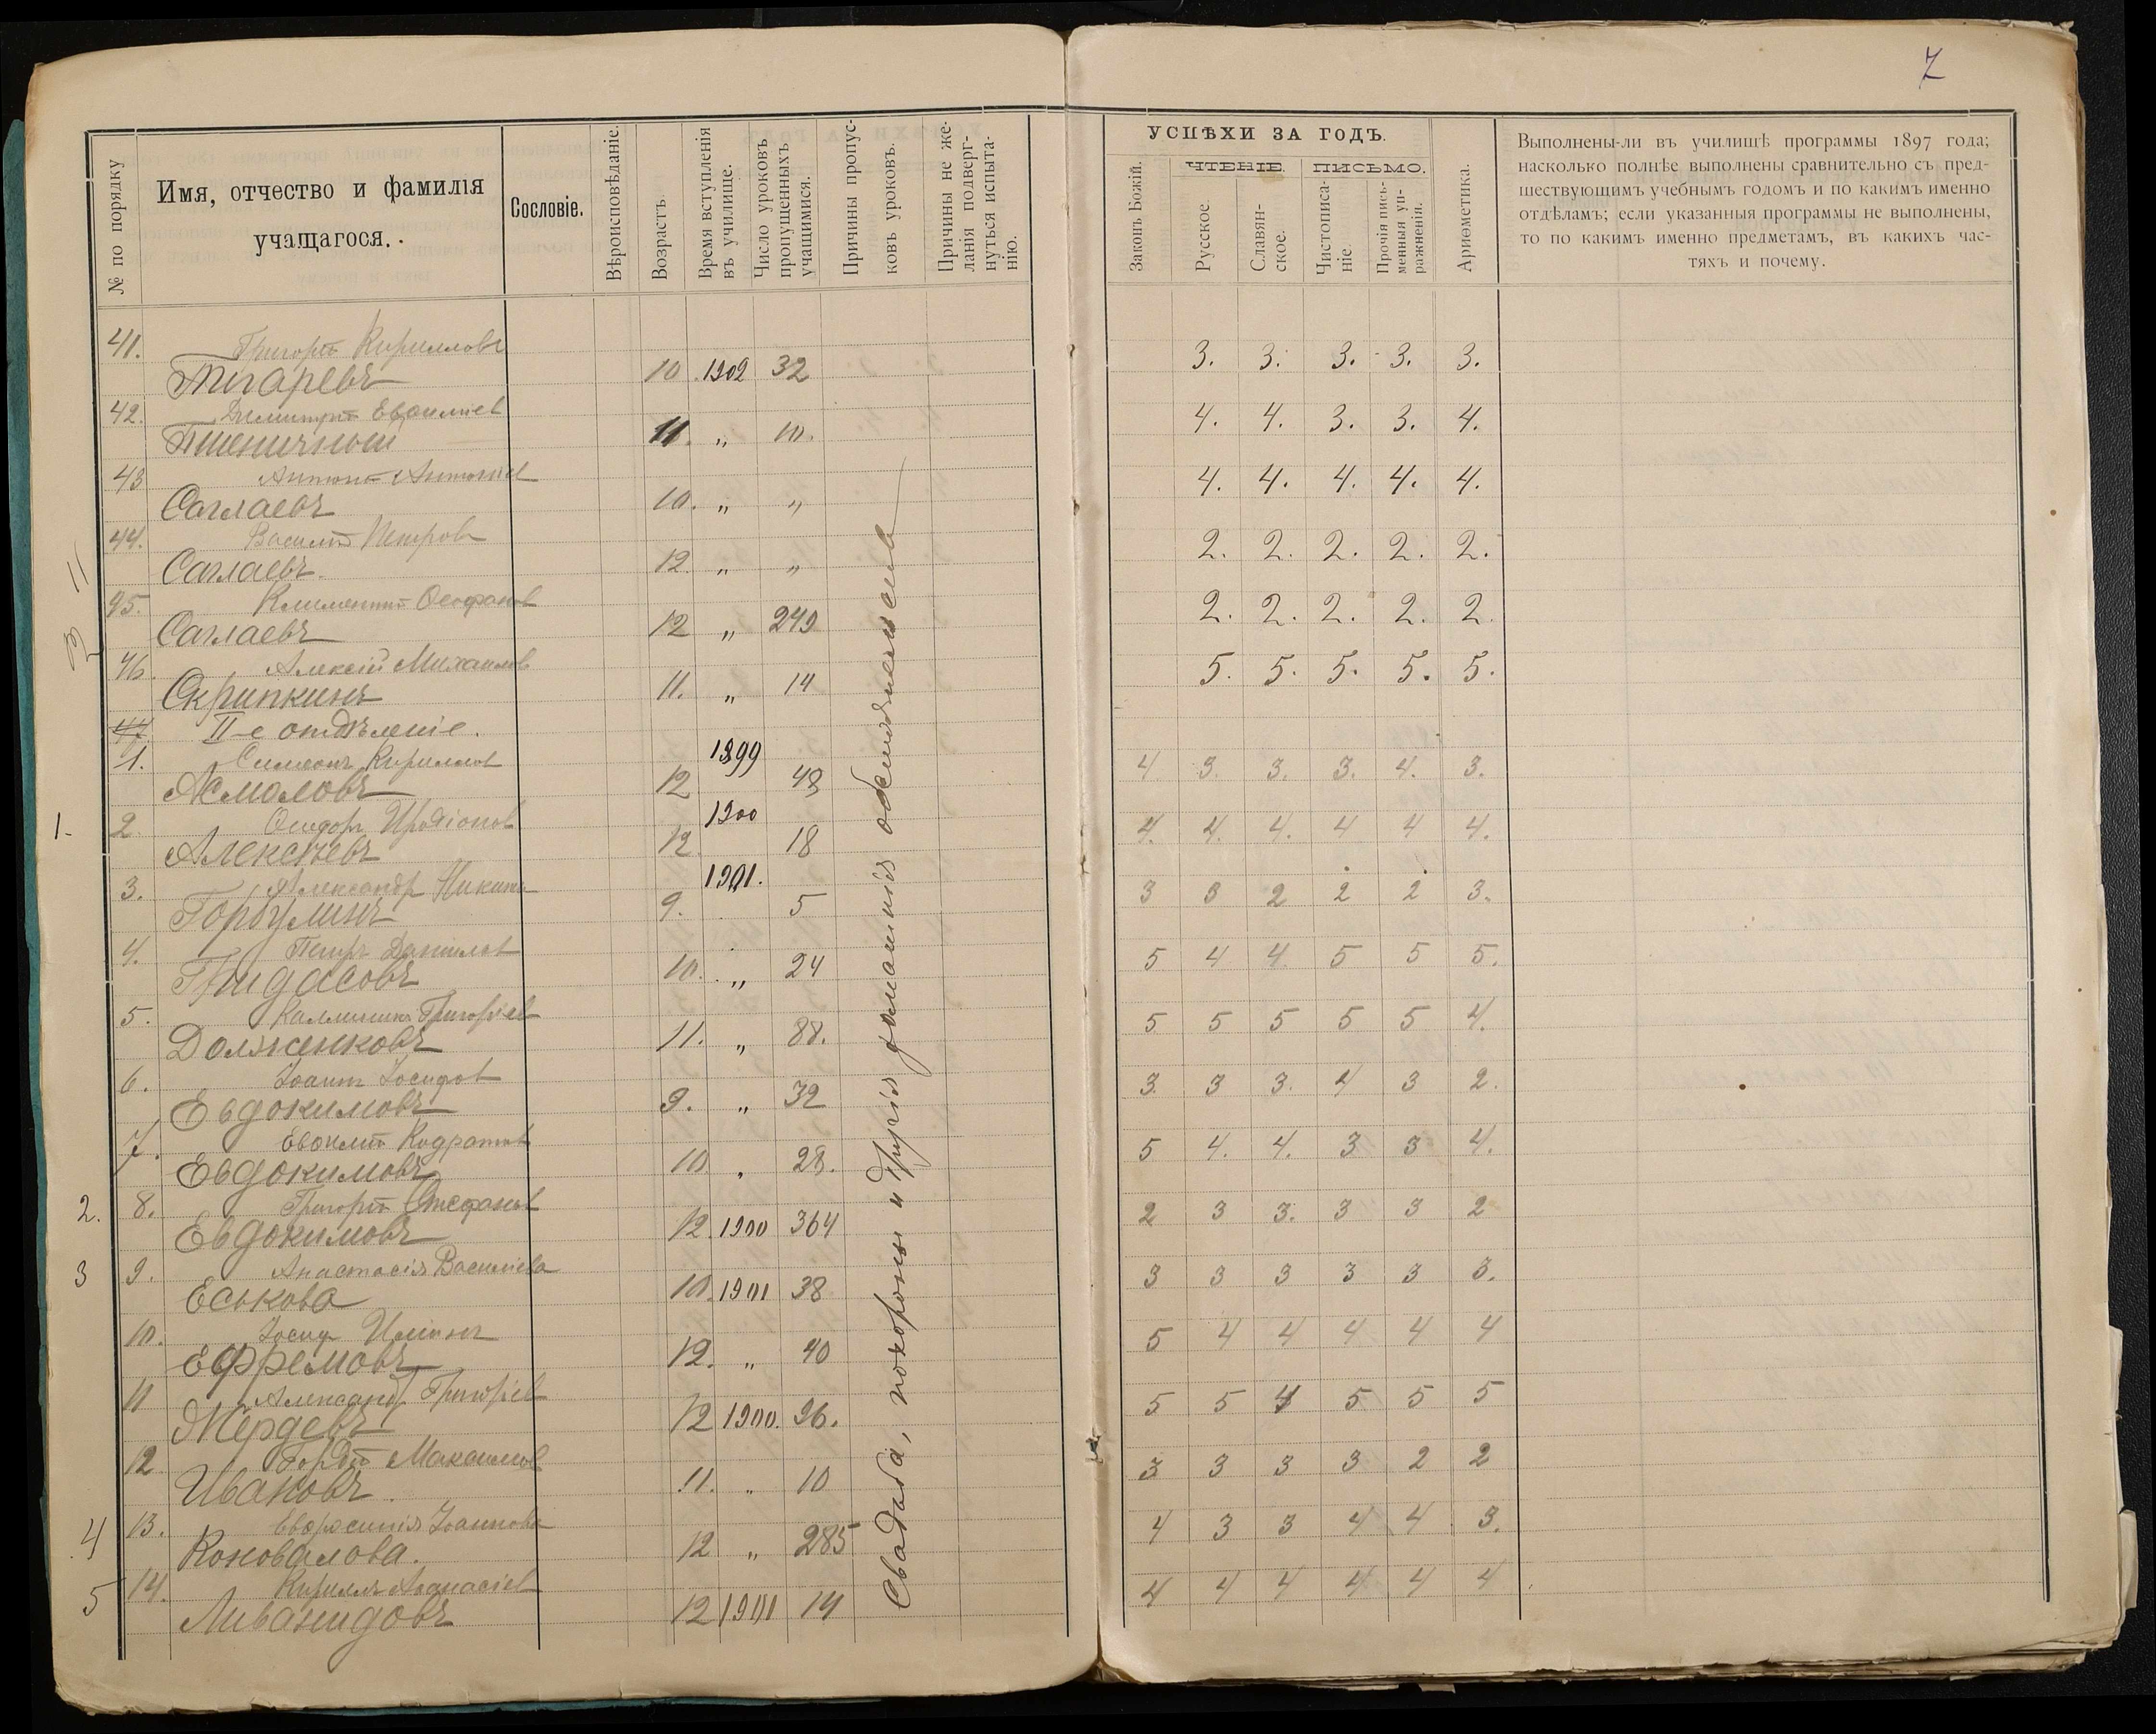 7
№ по порядку
Имя, отчество и фамилія
учащагося.
Сословіе.
Вѣроисповѣданіе.
Возрастъ.
Время вступленія
въ училище.
Число уроковъ
пропущенныхъ
учащимися.
Причины пропус-
ковъ уроковъ.
Причины не же-
ланія подверг-
нуться испыта-
нію.
УСПѢХИ ЗА ГОДЪ.
Законъ Божій.
ЧТЕНІЕ.
Русское.
Славян-
ское.
ПИСЬМО.
Чистописа-
ніе.
Прочія пись-
менныя уп-
ражненія.
Ариѳметика.
Выполнены-ли въ училищѣ программы 1897 года;
насколько полнѣе выполнены сравнительно съ пред-
шествующимъ учебнымъ годомъ и по какимъ именно
отдѣламъ; если указанныя программы не выполнены,
то по какимъ именно предметамъ, въ какихъ час-
тяхъ и почему.
41. Григорій Кирилловъ
Пигаревъ 10. 1902 32 3. 3. 3. 3. 3.
42. Димитрій Евѳиміев
Пшеничный 11. „ 10. 4. 4. 3. 3. 4.
43 Антонъ Антоніев
Саглаевъ 10. „ „ 4. 4. 4. 4. 4.
44. Василій Петров
Саглаевъ. 12. „ „ 2. 2. 2. 2. 2.
45. Климентій Ѳеофанов
Саглаевъ 12 „ 249 2. 2. 2. 2. 2.
46. Алексій Михаилов
Скрипкинъ 11. „ 14 5. 5. 5. 5. 5.
47 II-е отдѣленіе.
1. Симеонъ Кириллов
Асмоловъ 12 1899 48 4 3. 3. 3. 4. 3.
1. 2. Ѳеодоръ Иродіонов
Алексѣевъ 12 1900 18 4. 4. 4. 4 4 4.
3. Александр Никити
Горбулинъ 9. 1901. 5 3 3 2 2 2 3.
4. Петръ Даниилов
Гридасовъ 10. „ 24 5 4 4 5 5 5.
5. Каллиникъ Григоріев
Долженковъ 11. „ 88. 5 5 5 5 5 4.
6. Іоаннъ Іосифов
Евдокимовъ 9. „ 32 3. 3 3. 4 3 2.
7. Евѳимій Кодратов
Евдокимовъ 10 „ 28. 5 4. 4. 3 3 4.
2. 8. Григорій Стефанов
Евдокимовъ 12. 1900 364 2 3 3. 3 3 2
3 9. Анастасія Василіева
Еськова 10. 1901 38 3 3 3 3 3 3.
10. Іосиф Иліинъ
Ефремовъ 12. „ 40 5 4 4 4 4 4
11 Александр Григоріев
Жердевъ 12 1900. 96. 5 5 4 5 5 5
12 Гордій Максимов
Ивановъ. 11. „ 10 3 3 3 3 2 2
4 13. Евфросинія Іоаннова
Коновалова. 12 „ 285 4 3 3 4 4 3.
5 14. Кириллъ Аѳанасіев
Ливанидовъ 12 1901 14 4 4 4 4 4 4
Свадьба, похороны и другія домашнія обстоятельства